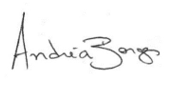 Andréa Borges